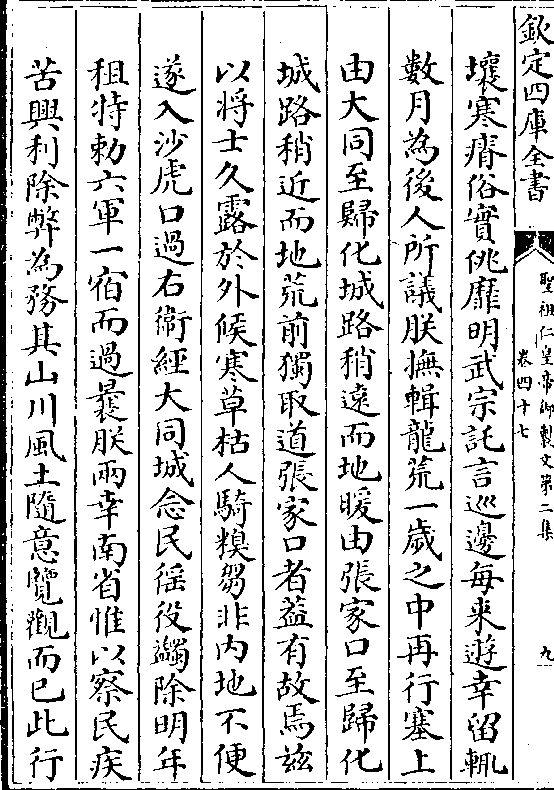 欽定四庫全書
聖祖仁皇帝御製文第二集
卷四十七
九
壤寒瘠俗實佻靡明武宗託言巡邊每來遊幸留輒
數月為後人所議朕撫輯龍荒一歲之中再行塞上
由大同至歸化城路稍遠而地暖由張家口至歸化
城路稍近而地荒前獨取道張家口者葢有故焉兹
以將士久露於外候寒草枯人騎糗芻非内地不便
遂入沙虎口過右衛經大同城念民徭役蠲除明年
租特勅六軍一宿而過曩朕兩幸南省惟以察民疾
苦興利除弊為務其山川風土隨意覽觀而已此行